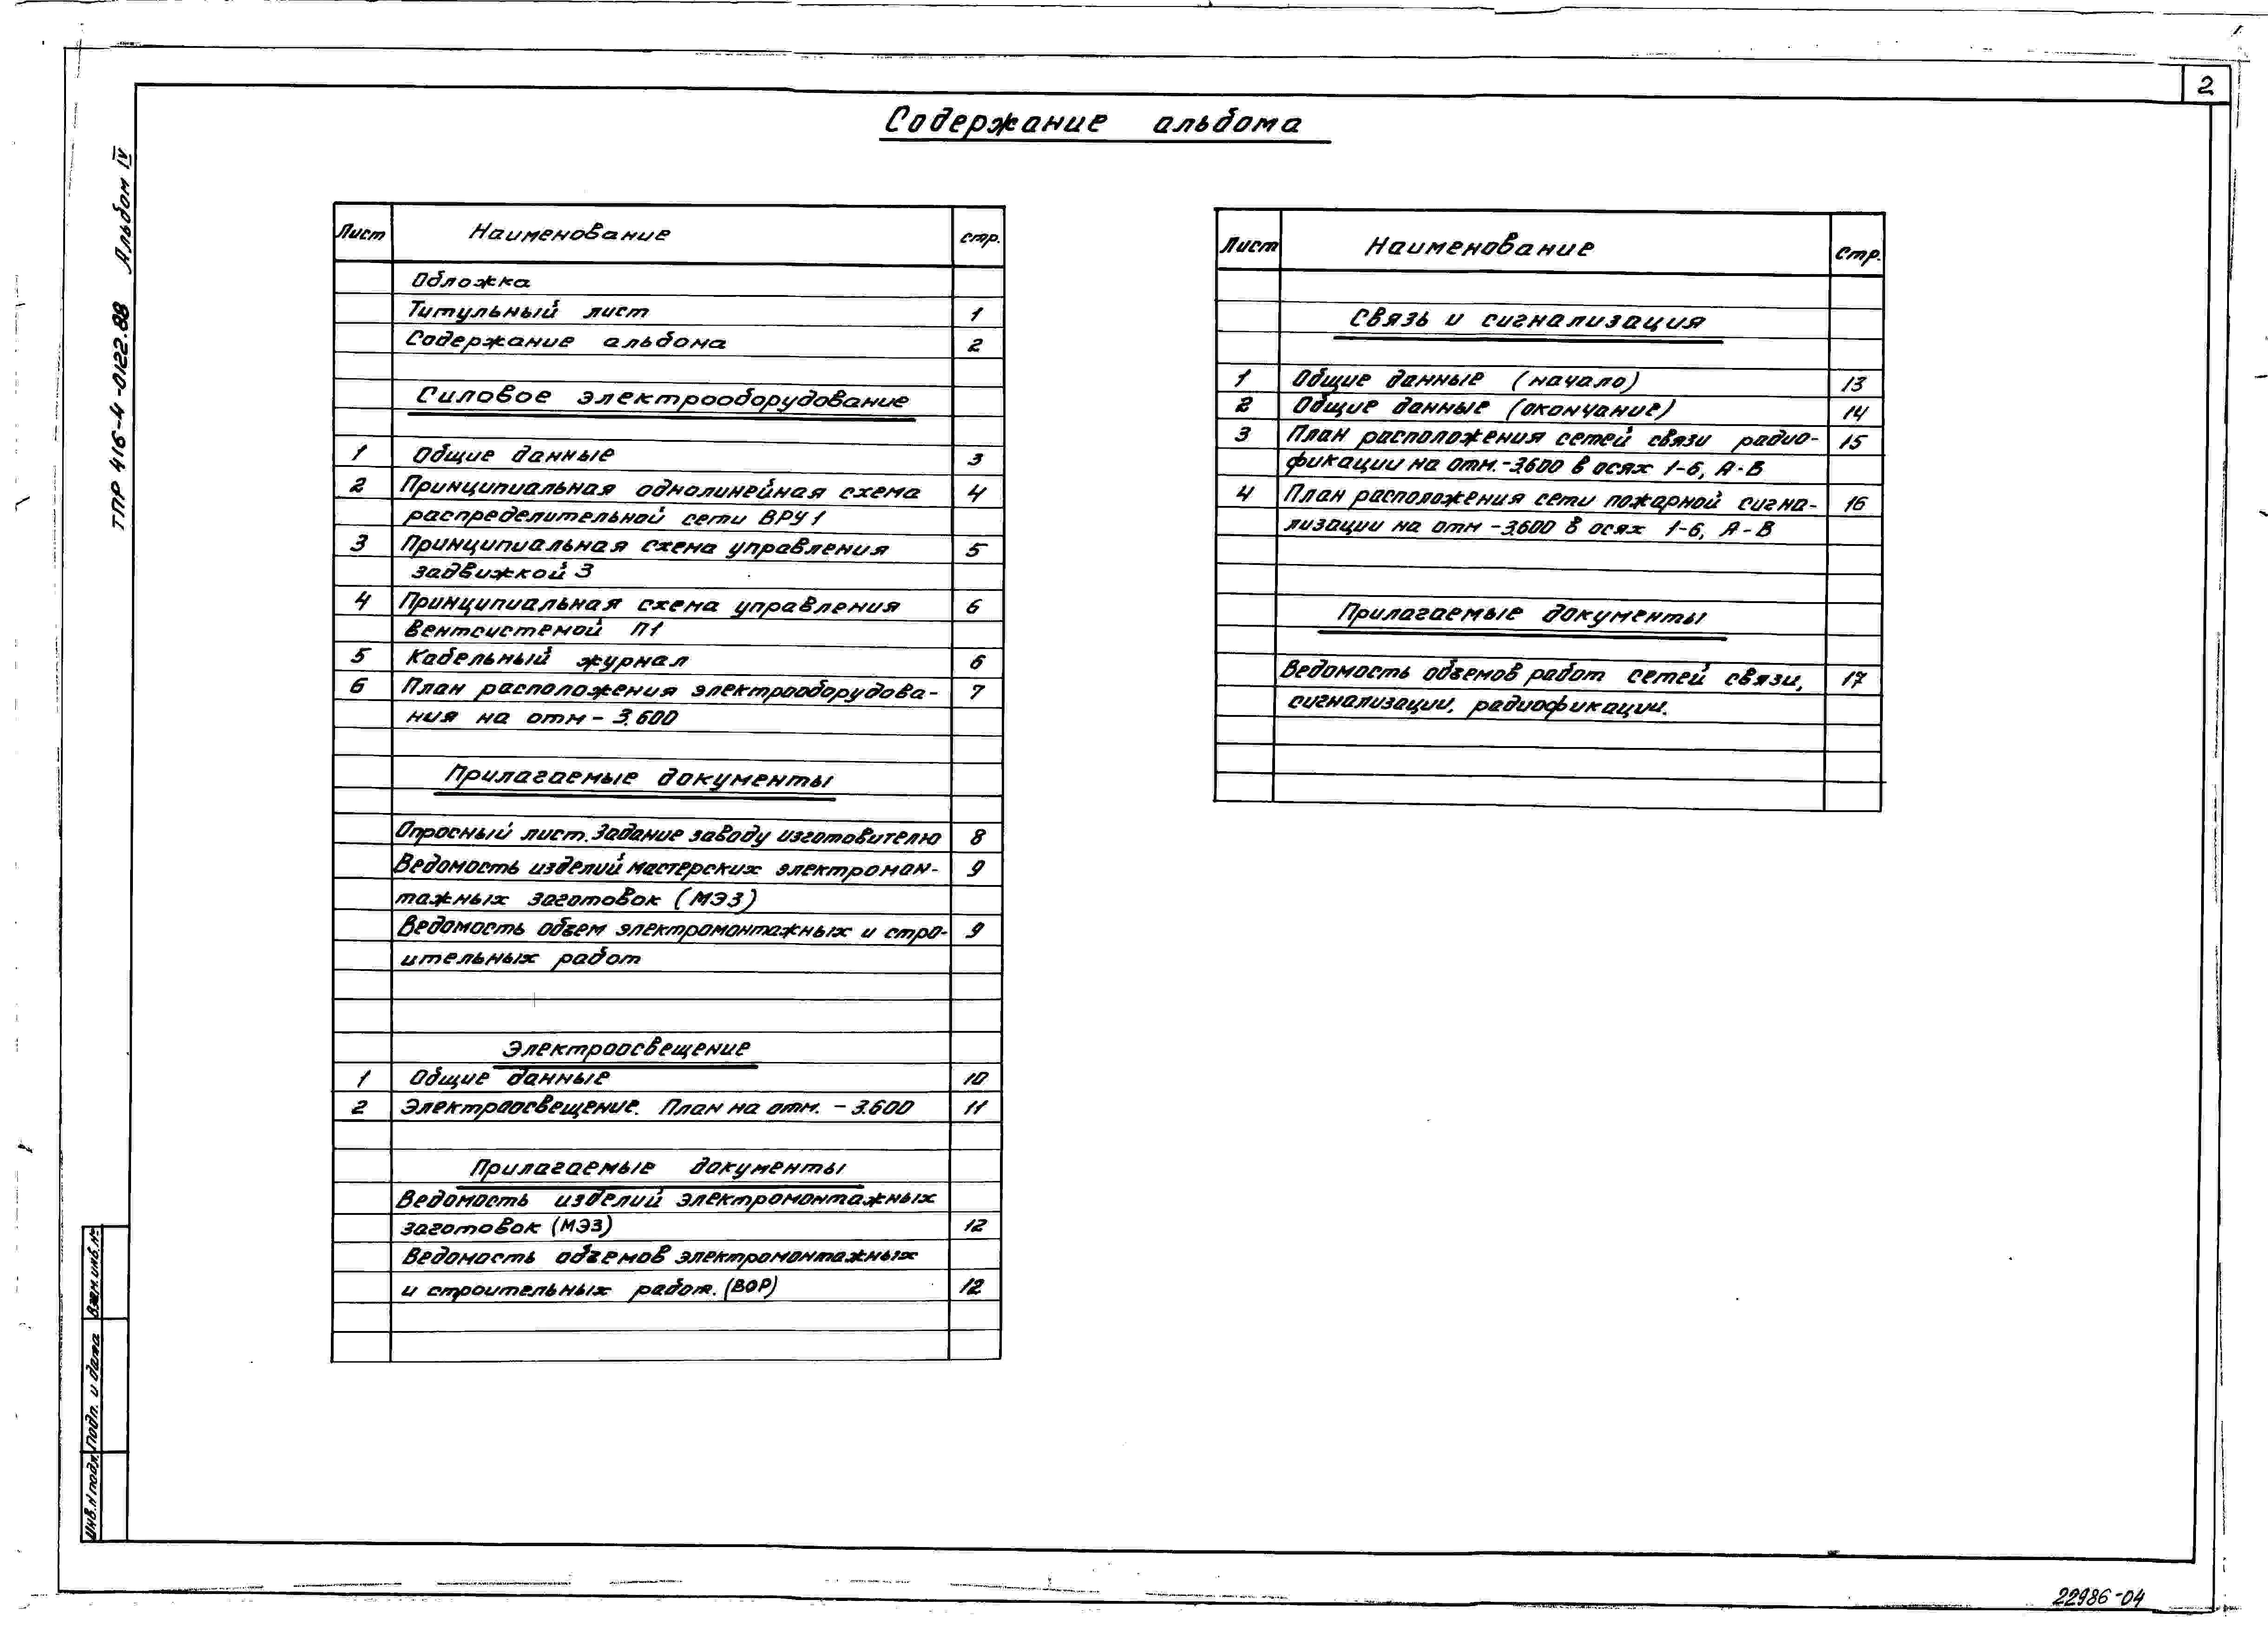 2
Содержание альбома
ТПР 416-4-0122.88 Альбом IV
Лист Наименование стр.
Обложка
Титульный лист 1
Содержание альбома 2
Силовое электрооборудование
1 Общие данные 3
2 Принципиальная однолинейная схема 4
распределительной сети ВРУ1
3 Принципиальная схема управления 5
задвижкой 3
4 Принципиальная схема управления 6
вентсистемой П1
5 Кабельный журнал 6
6 План расположения электрооборудова- 7
ния на отм - 3.600
Прилагаемые документы
Опросный лист. Задание заводу изготовителю 8
Ведомость изделий мастерских электромон- 9
тажных заготовок (МЭЗ)
Ведомость объем электромонтажных и стро- 9
ительных работ
Электроосвещение
1 Общие данные 10
2 Электроосвещение. План на отм. - 3.600 11
Прилагаемые документы
Ведомость изделий электромонтажных
заготовок (МЭЗ) 12
Ведомость объемов электромонтажных
и строительных работ. (ВОР) 12
Лист Наименование Стр.
Связь и сигнализация
1 Общие данные (начало) 13
2 Общие данные (окончание) 14
3 План расположения сетей связи радио- 15
фикации на отм.-3.600 в осях 1-6, А-В
4 План расположения сети пожарной сигна- 16
лизации на отм -3.600 в осях 1-6, А-В
Прилагаемые документы
Ведомость объемов работ сетей связи, 17
сигнализации, радиофикации.
Взам. инв. №
Подп. и дата
Инв. N подл.
22986-04